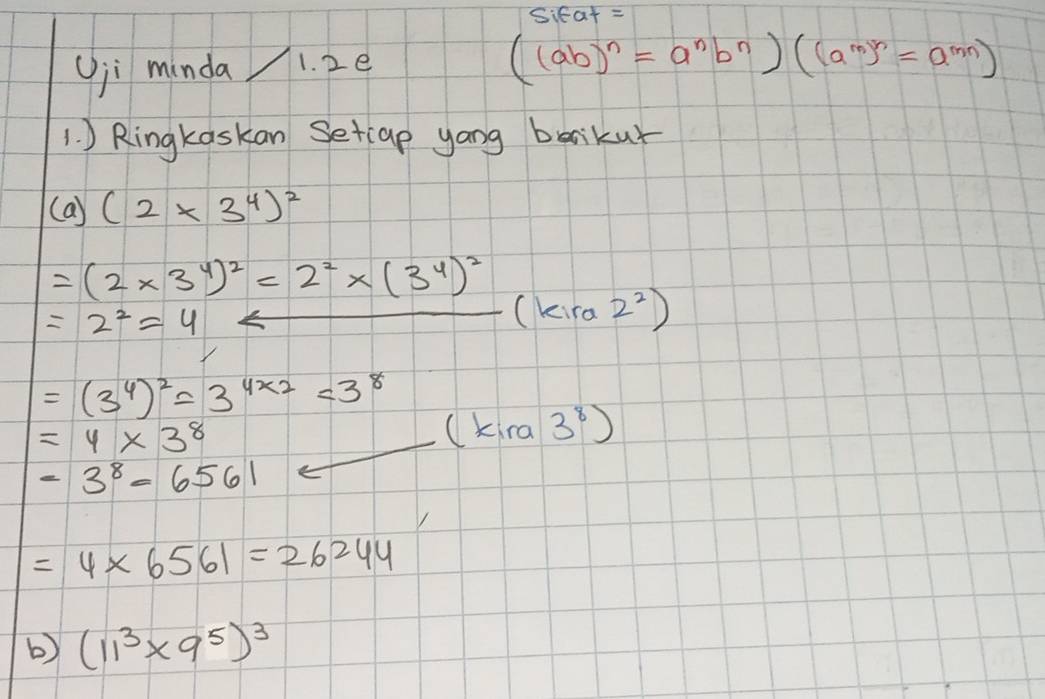 Sifat =
Uji minda / 1.2e ((ab)ⁿ = aⁿbⁿ) ((aᵐ)ⁿ = aᵐⁿ)
1.) Ringkaskan Setiap yang berikut
(a) (2 × 3⁴)²
= (2 × 3⁴)² = 2² × (3⁴)²
= 2² = 4 ← (kira 2²)
= (3⁴)² = 3⁴ˣ² = 3⁸
= 4 × 3⁸ (kira 3⁸)
= 3⁸ = 6561 ←
= 4 × 6561 = 26244
b) (11³ × 9⁵)³